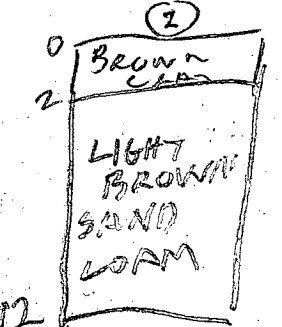 1
0
BROWN
CLAY
2
LIGHT
BROWN
SAND
LOAM
12